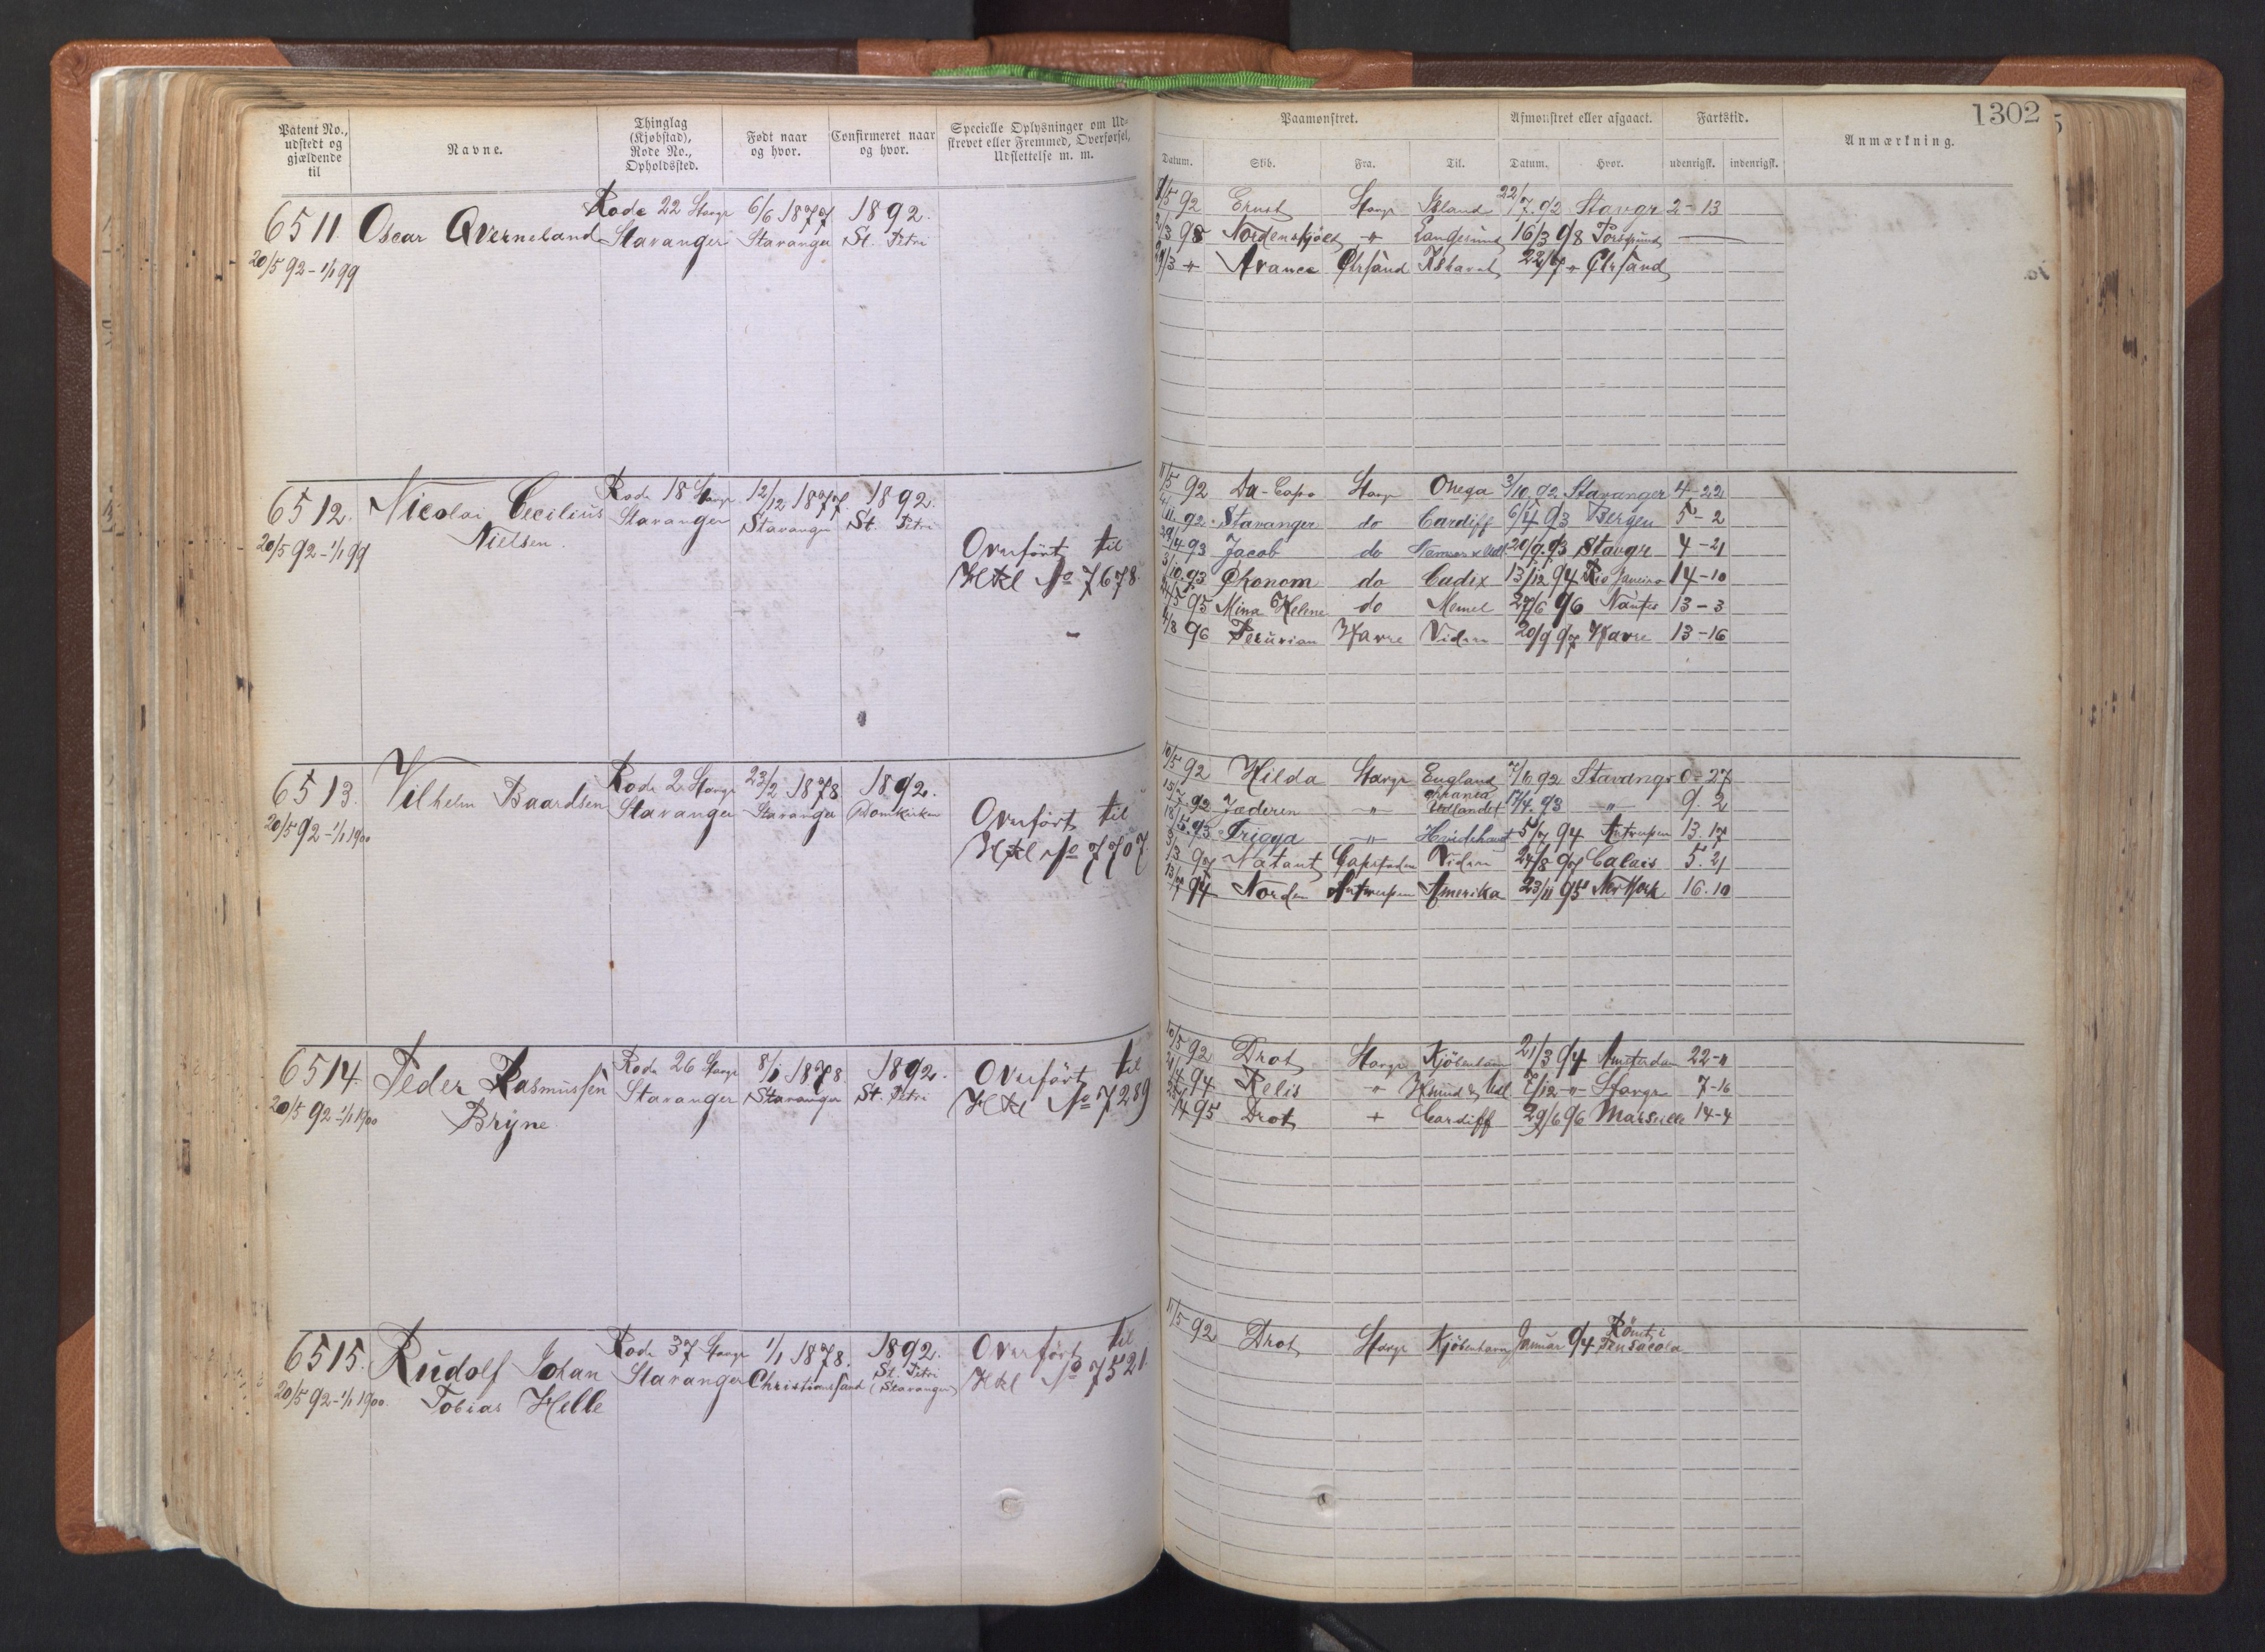 1302
Patent No., udstedt og gjældende til
Navne.
Thinglag (Kjøbstad), Rode No., Opholdssted.
Født naar og hvor.
Confirmeret naar og hvor.
Specielle Oplysninger om Ud-
skrevet eller Fremmed, Overførsel,
Udslettelse m. m.
Paamønstret.
Afmønstret eller afgaaet.
Fartstid.
Anmærkning.
Datum. Skib. Fra. Til. Datum. Hvor. udenrigsk. indenrigsk.
6511. Oscar Qverneland Rode 22 Stavgr 6/6 1877 1892.
20/5 92 - 1/1 99 Stavanger Stavanger St. Petri
/5 92 Ernst Stavgr Island 22/7.92 Stavgr 2-13
/3 98 Nordenskjold " Langesund 16/3 98 Porsgrund
/3 " Avance Chrsand 22/7 " Chrsand
6512. Nicolai Cecilius Nielsen. Rode 18 Stavgr 12/12 1877. 1892.
20/5 92 - 1/1 99 Stavanger Stavanger St. Petri
Overført til
Htkl No 7678.
11/5 92 Da-Capo Stavgr Onega 3/10 92 Stavanger 4-22
/11. 92. Stavanger do Cardiff 6/4 93 Bergen 5-2
29/4 93 Jacob do 20/9.93 Stavgr 4-21
3/10.93 Økonom do Cadix 13/12 94 Rio Janeiro 14-10
/5 95 Mina Helene do Memel 27/6 96 Nantes 13-3
4/8 96 Peruvian Havre Viden 20/9 97 Havre 13-16
6513. Vilhelm Baardsen Rode 2 Stavgr 23/2 1878 1892.
20/5 92 - 1/1 1900 Stavanger Stavanger Domkirken
Overført til
Htkl No 7707.
10/5 92 Hilda Stavgr England 7/6 92 Stavangr 0-27
15/7.92 Jæderen " Udlandet 17/4.93 " 9.2
18/5.93 Frigga " 5/7 94 Antwerpen 13.17
/3 97 Natant Capstaden Viden 24/8 97 Calais 5.21
13/7 94 Norden Antwerpen Amerika 23/11 95 New York 16.10
6514. Peder Rasmussen Bryne Rode 26 Stavgr 8/1 1878. 1892.
20/5 92 - 1/1 1900 Stavanger Stavanger St. Petri
Overført til
Htkl No 7289
10/5 92 Drot Stavgr Kjöbenhavn 21/3 94 Amsterdam 22-11
/4 94 Relis " Hsund & Udl. 7/12 -"- Stavgr 7-16
/4 95 Drot + Cardiff 29/6 96 Marseille 14-4
6515. Rudolf Johan Tobias Helle Rode 37 Stavgr 1/1 1878. 1892.
20/5 92 - 1/1 1900. Stavanger Christiansand St. Petri (Stavanger)
Overført til
Htkl No 7521.
11/5 92 Drot Stavgr Kjöbenhavn Januar 94 Römt i Pensacola